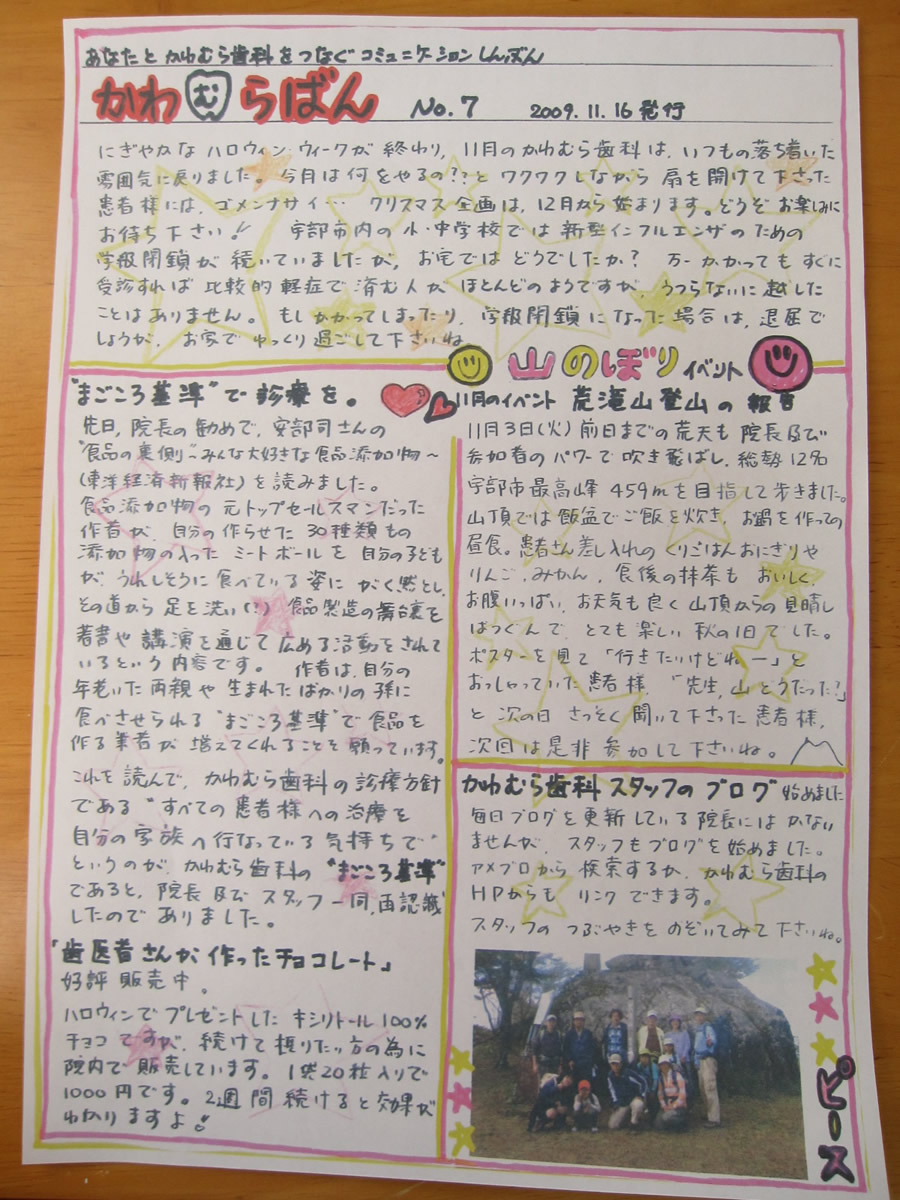 あなたと かわむら歯科をつなぐ コミュニケーションしんぶん
かわむらばん No.7 2009.11.16発行
にぎやかな ハロウィン・ウィークが 終わり、11月のかわむら歯科は、いつもの落ち着いた
雰囲気に戻りました。今月は何をやるの??と ワクワクしながら 扉を開けて下さった
患者様には、ゴメンナサイ… クリスマス企画は、12月から始まります。どうぞ お楽しみに
お待ち下さい! 宇部市内の小・中学校では 新型インフルエンザのための
学級閉鎖が 続いていましたが、お宅では どうでしたか? 万一かかっても すぐに
受診すれば 比較的軽症で 済む人が ほとんどのようですが、うつらないに越した
ことはありません。もし かかってしまったり、学級閉鎖になった場合は、退屈で
しょうが、お家で ゆっくり過ごして下さいね
"まごころ基準"で 診療を。
先日、院長の勧めで、安部司さんの
"食品の裏側〜みんな大好きな食品添加物〜
(東洋経済新報社)を読みました。
食品添加物の 元トップセールスマンだった
作者が、自分の作らせた 30種類もの
添加物の入った ミートボールを 自分の子ども
が うれしそうに食べている姿に がく然とし、
その道から 足を洗い(?) 食品製造の舞台裏を
著書や 講演を通じて 広める活動をされて
いるという内容です。 作者は、自分の
年老いた両親や 生まれたばかりの孫に
食べさせられる "まごころ基準"で 食品を
作る業者が 増えてくれることを 願っています。
これを 読んで、かわむら歯科の診療方針
である "すべての 患者様への治療を
自分の家族へ行なっている気持ちで"
というのが、かわむら歯科の "まごころ基準"
であると、院長及び スタッフ一同、再認識
したのでありました。
「歯医者さんが作ったチョコレート」
好評 販売中。
ハロウィンで プレゼントした キシリトール100%
チョコですが、続けて摂りたい方の為に
院内で 販売しています。1袋20粒入りで
1000円です。2週間続けると効果が
わかりますよ!
山のぼり イベント
11月のイベント 荒滝山登山の報告
11月3日(火) 前日までの荒天も 院長及び
参加者のパワーで 吹き飛ばし、総勢12名
宇部市最高峰 459mを目指して歩きました。
山頂では 飯盆でご飯を炊き、お鍋を作っての
昼食。患者さん差し入れの くりごはんおにぎりや
りんご、みかん、食後の抹茶も おいしく、
お腹いっぱい、お天気も良く 山頂からの 見晴し
ばつぐんで、とても楽しい 秋の1日でした。
ポスターを見て 「行きたいけどねー」と
おっしゃっていた患者様、「先生、山どうだった?」
と 次の日 さっそく聞いて下さった 患者様、
次回は是非 参加して下さいね。
かわむら歯科 スタッフの ブログ 始めました
毎日ブログを更新している院長にはかない
ませんが、スタッフもブログを始めました。
アメブロから検索するか、かわむら歯科の
HPからも リンクできます。
スタッフの つぶやきを のぞいてみて下さいね。
ピース